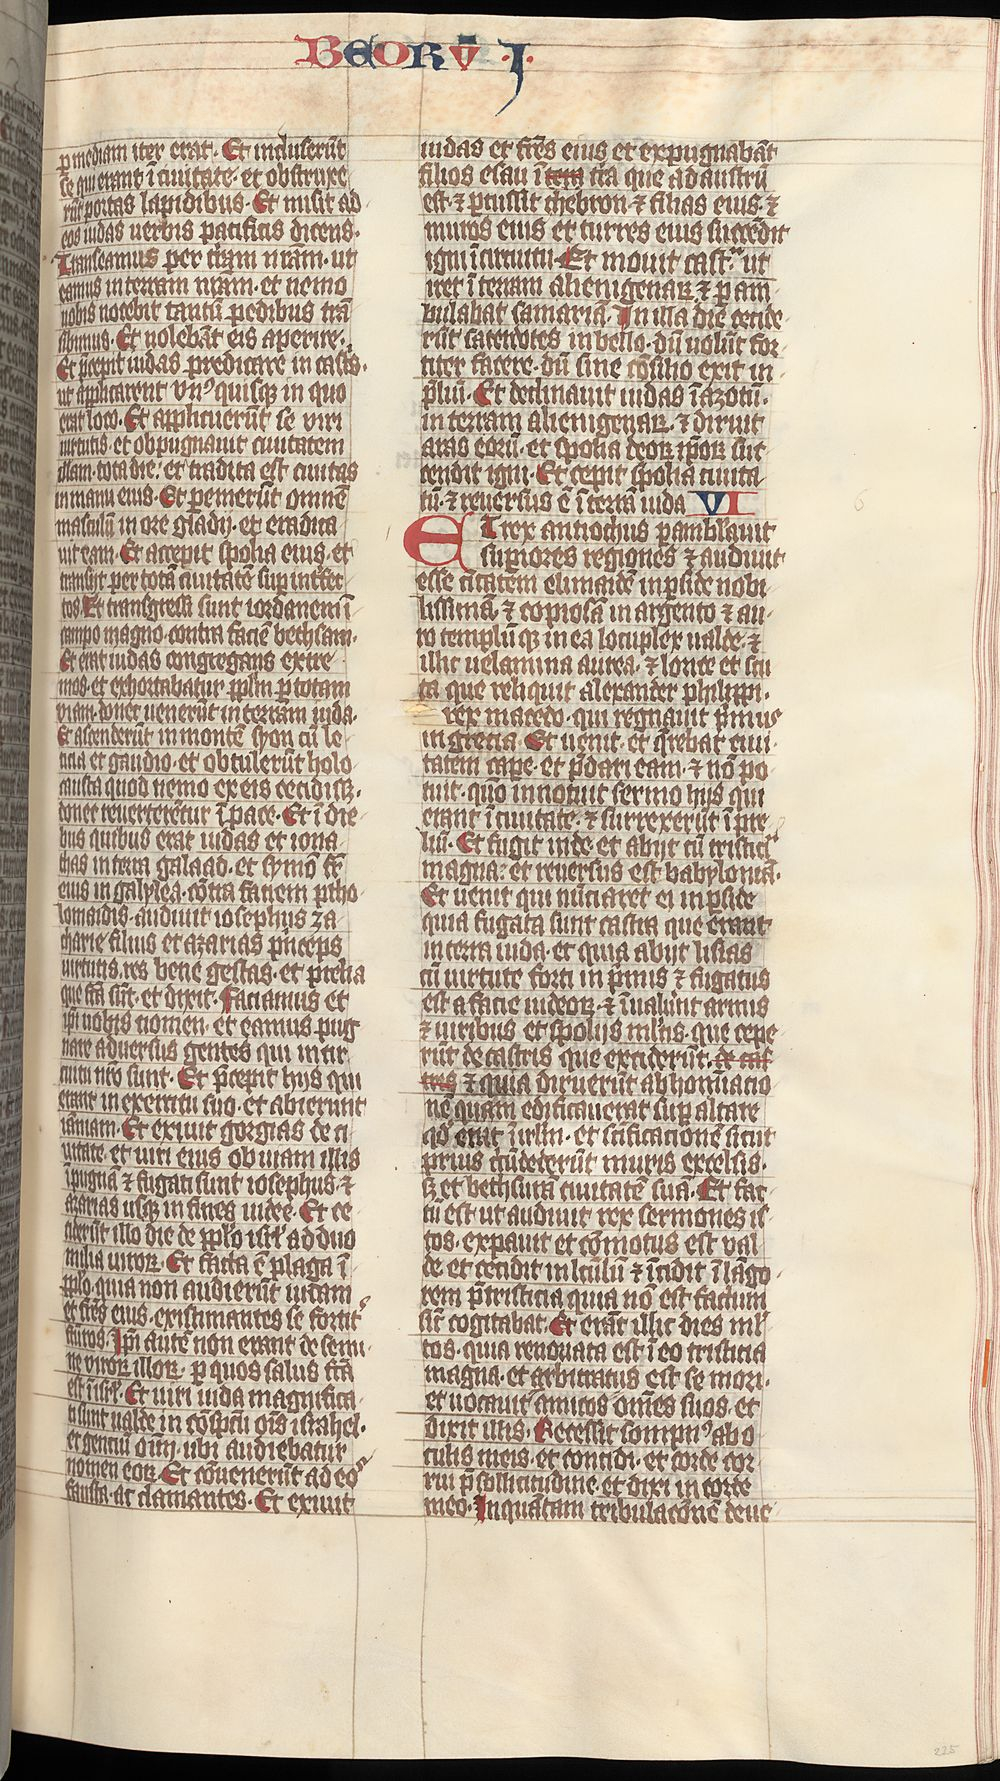 BEORV̄ · I ·
p mediam iter erat · Et incluserūt
se qui erant ī ciuitate · et obstruxe
rūt portas lapidibus · Et misit ad
eos iudas uerbis pacificis dicens ·
Transeamus per t̄ram n̄ram · ut
eamus in terram n̄ram · et nemo
nobis nocebit tantū pedibus trā
sibimus · Et nolebāt eis aperire ·
Et p̄cepit iudas predicare in cast̄s ·
ut applicarent vn᷒ quisq̨ in quo
erat loco · Et applicuerūt se viri
uirtutis · et obpugnauit ciuitatem
illam · tota die · et tradita est ciuitas
in manu eius · Et pemerūt omnē
masculū in ore gladij · et eradica
uit eam · Et accepit spolia eius · et
transijt per totā ciuitatē sup int̄fec
tos · Et transgressi sunt iordanem ī
campo magno · contra faciē bethsam ·
Et erat iudas congregans extre
mos · et exhortabatur pp̄lm p totam
viam · donec uenerūt in terram iuda ·
Et ascenderūt in montē syon cū le
ticia et gaudio · et obtulerūt holo
causta quod nemo ex eis cecidiss̨ ·
donec reuerterētur ī pace · Et ī die
bus quibus erat iudas et iona
thas in terra galaad · et symō fr̄
eius in galylea · cōtra faciem ptho
lomaidis · audiuit iosephus za
charie filius et azarias p̄nceps
uirtutis · res bene gestas · et prelia
que fc̄a sūt · et dixit · Faciamus et
ip̄i nobis nomen · et eamus pug
nare aduersus gentes qui in cir
cuitu nr̄o sunt · Et p̄cepit hijs qui
erant in exercitu suo · et abierunt
iamniam · Et exiuit gorgias de ci
uitate · et uiri eius obuiam illis
ī pugnā ⁊ fugati sunt iosephus · ⁊
azarias usq̨ in fines iudee · Et ce
ciderūt illo die de pp̄lo isr̄l ad duo
milia uiroꝝ · Et facta ē plaga ī
pp̄lo · quia non audierūt iudam
et fr̄es eius · existimantes se fortit᷑
facturos · Ip̄i autē non erant de semi
ne viroꝝ illoꝝ · p quos salus fc̄a
est ī isr̄l · Et uiri iuda magnifica
ti sunt ualde in cōspectu oīs israhel ·
et gentiū oīm · ubi audiebatur
nomen eoꝝ · Et cōuenerūt ad eos
fausta · ac clamantes · Et exiuit
iudas et fr̄es eius et expugnabāt
filios esau ī terra t̄ra que ad austrū
est · ⁊ p̄cussit chebron · ⁊ filias eius · ⁊
muros eius et turres eius succēdit
igni ī circuitu · Et mouit cast᷑ ut
iret ī terram alienigenaꝝ ⁊ p am
bulabat samariā · In illa die cecide
rūt sacerdotes in bello · dū uolūt for
titer facere · dū sine cōsilio exit in
p̄liū · Et declinauit iudas ī azotū ·
in terram alienigenaꝝ · ⁊ diruit
aras eorū · et spolia deoꝝ ip̄oꝝ suc
cendit igni · Et cepit spolia ciuita
tū · ⁊ reuersus ē ī terrā iuda VI
Et rex antiochus pamblauit
supiores regiones ⁊ audiuit
esse ciuitatem elimaidē in pside nobi
lissimā · ⁊ copiosā in argento ⁊ au
ro templū q̨ in ea locuplex ualde · ⁊
illic uelamina aurea · ⁊ lorice et scu
ta que reliquit alexander philippi ·
rex macedo · qui regnauit p̄mus
in grecia · Et uenit · et q̄rebat ciui
tatem cape · et p̄dari eam · ⁊ nō po
tuit · qūo innotuit sermo hijs qui
erant ī ciuitate · ⁊ surrexerūt ī pre
liū · Et fugit inde et abijt cū tristic᷑
magna · et reuersus est babyloniā ·
Et uenit qui nūciaret ei in pside
quia fugata sunt castra que erant
in terra iuda · et quia abijt lisias
cū uirtute forti in p̄mis ⁊ fugatus
est a facie iudeoꝝ · ⁊ īualuūt armis
⁊ uiribus et spolijs ml̄tis · que cepe
rūt de castris que exciderūt · de cas
tris ⁊ quia diruerūt abhominacio
nē quam edificauerat sup altare
qd̄ erat ī irl̄m · et sc̄ificationē sicut
prius cūdederūt muris excelsis ·
s̨ et bethsurā ciuitatē suā · Et fac
tū est ut audiuit rex sermones is
tos · expauit et cōmotus est val
de et cecidit in lectulū ⁊ īcidit ī lāgo
rem p̄ tristicia quia nō est factum
sic̄ cogitabat · Et erat illic dies ml̄
tos · quia renouata est ī eo tristicia
magna · et arbitratus est se mori ·
et uocauit amicos om̄es suos · et
dixit illis · Recessit sompn᷒ ab o
culis meis · et concidi · et corde cor
rui p̄ sollicitudine · et dixi in corde
meo · In quātam tribulac̄onē deue
225